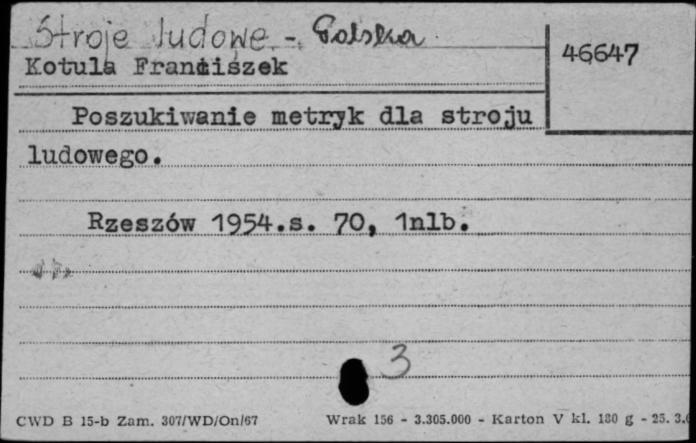 Stroje ludowe - Polska
46647
Kotula Franciszek
Poszukiwanie metryk dla stroju
ludowego.
Rzeszów 1954.s. 70, 1nlb.
3
CWD B 15-b Zam. 307/WD/On/67
Wrak 156 - 3.305.000 - Karton V kl. 180 g - 25. 3.